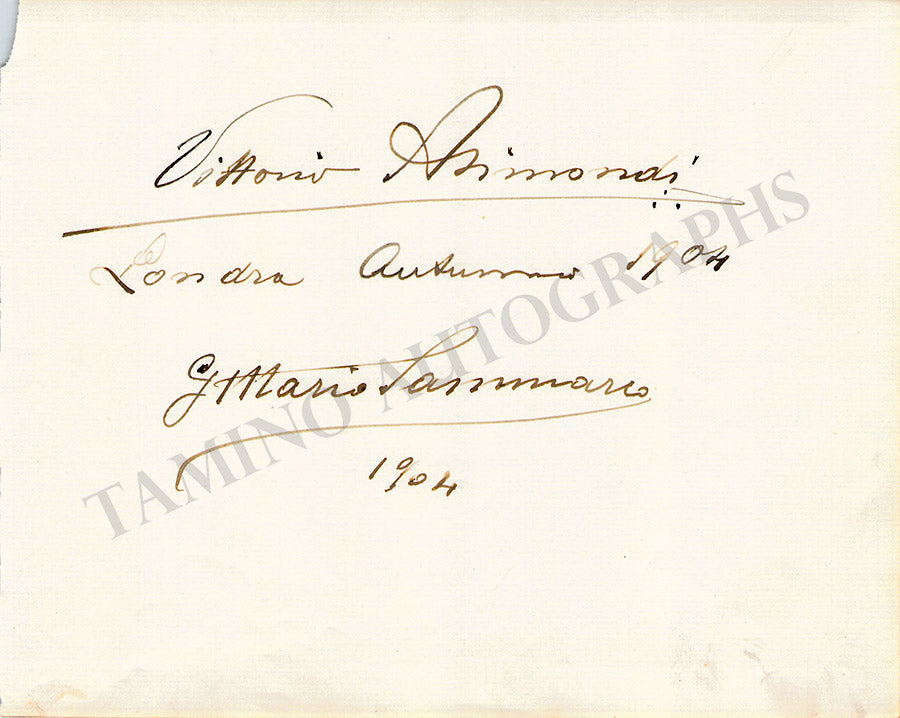 Vittorio Arimondi
Londra Autunno 1904
G Mario Sammarco
1904
TAMINO AUTOGRAPHS